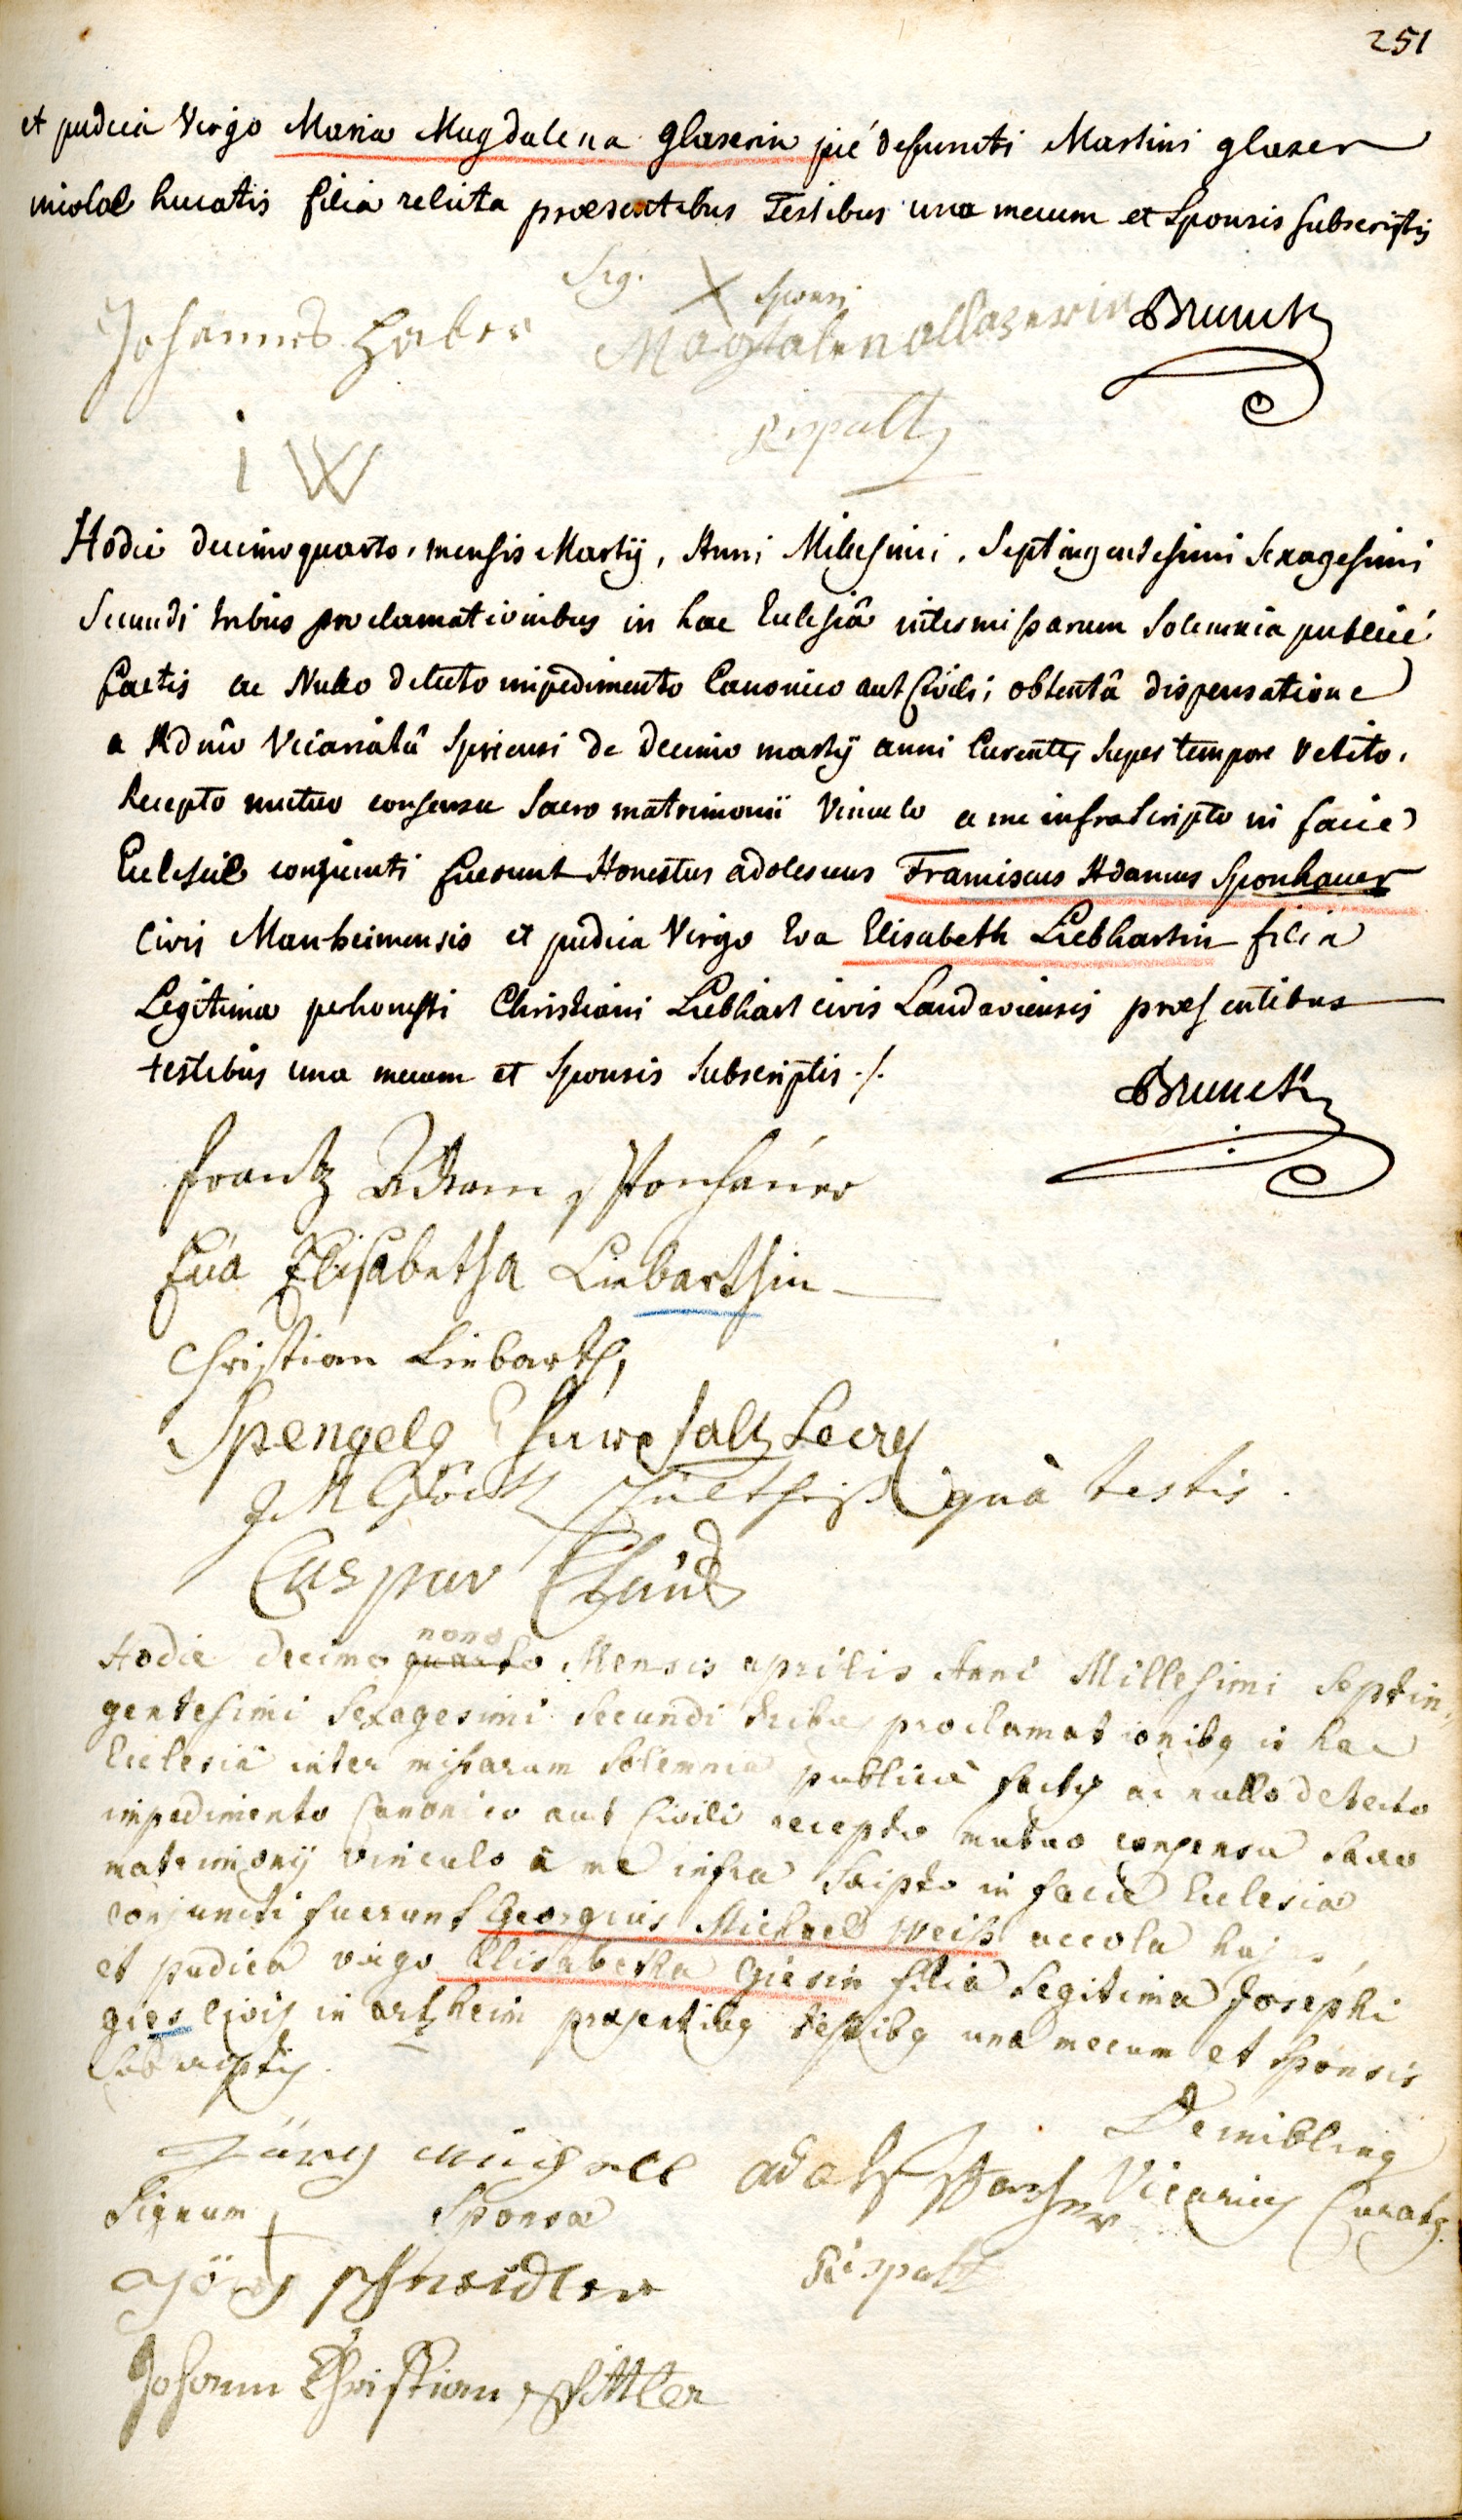 251
et pudica Virgo Maria Magdalena glaserin pié defuncti Martini glaser
incolae hucatis filia relicta praesentibus Testibus una mecum et Sponsis subscriptis
Sig. X Sponsi
Johannes Haber Magdalena Brunck
Rispalt
i W
Hodie decimo quarto, mensis Martij, Anni Millesimi, Septingentesimi Sexagesimi
Secundi tribus proclamationibus in hac Ecclesiâ inter missarum Solemnia publicé
factis ac Nullo detecto impedimento Canonico aut Civili; obtentâ dispensatione
a Vicariatû Spirensi de decimo martij anni Currentis super tempore vetito,
Recepto mutuo consensu Sacro matrimonii Vinculo a me infrascripto in facie
Ecclesiae conjuncti fuerunt Honestus adolescens Franciscus Adamus Sponhauer
Civis Manheimensis et pudica Virgo Eva Elisabeth Liebhartin filia
Legitima perhonesti Christiani Liebhart civis Landaviensis praesentibus
testibus una mecum et Sponsis Subscriptis ./.
Brunck
frantz Adam Sponhauer
Eva Elisabetha Liebarthin
Christian Liebarth
Spengel
qua testis.
Caspar
Hodie decimo quarto nono Mensis aprilis Anni Millesimi Septin,
gentesimi Sexagesimi Secundi tribus proclamationibq in hac
Ecclesiâ inter missarum Solemnia publicè factis ac nullo detecto
impedimento Canonico aut Civili recepto mutuo consensu Sacro
matrimonij vinculo à me infra Scripto in facie Ecclesia
conjuncti fuerunt Georgius Michael Weiß accola hujas,
et pudica virgo Elisabetha Giesin filia Legitima Josephi
gies Civis in artzheim praesentibq testibq una mecum et sponsis
Subscriptis.
Demibling
Jüng Michell adolf Vicarius Curatq.
Signum + Sponsa
Jörg Schneidler Rispalt
Johann Christian Schittler